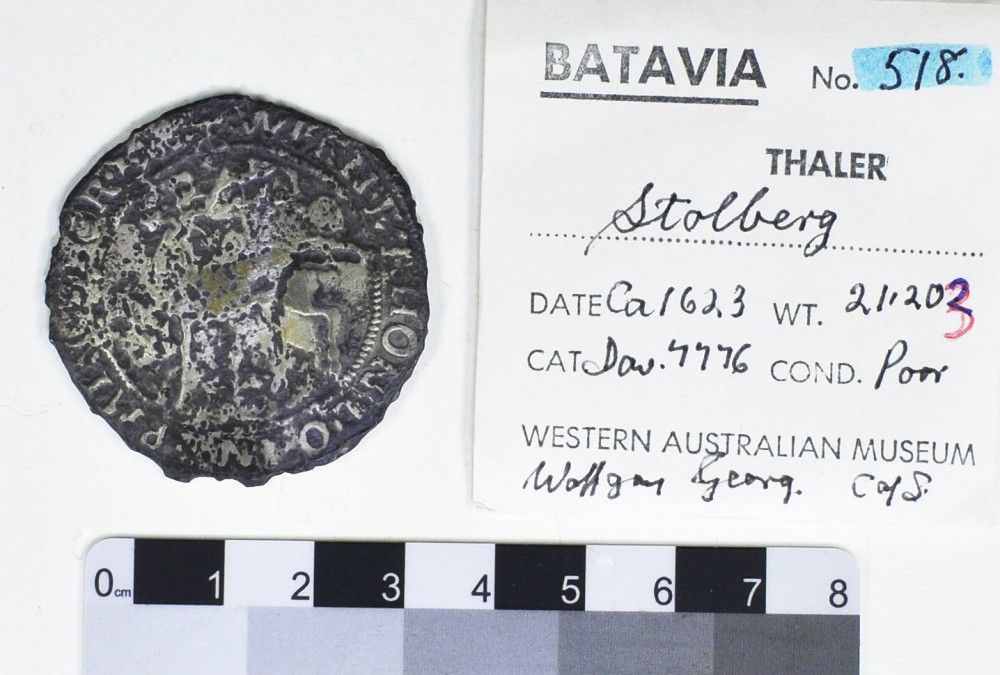 BATAVIA No. 518.
THALER
Stolberg
DATE Ca 1623 WT. 21.203
CAT Dav. 7776 COND. Poor
WESTERN AUSTRALIAN MUSEUM
Wolfgang Georg.
0 cm 1 2 3 4 5 6 7 8